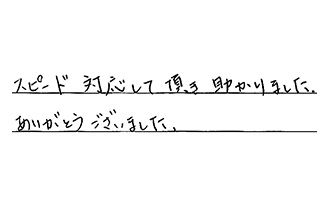 スピード対応して頂き助かりました.
ありがとうございました.